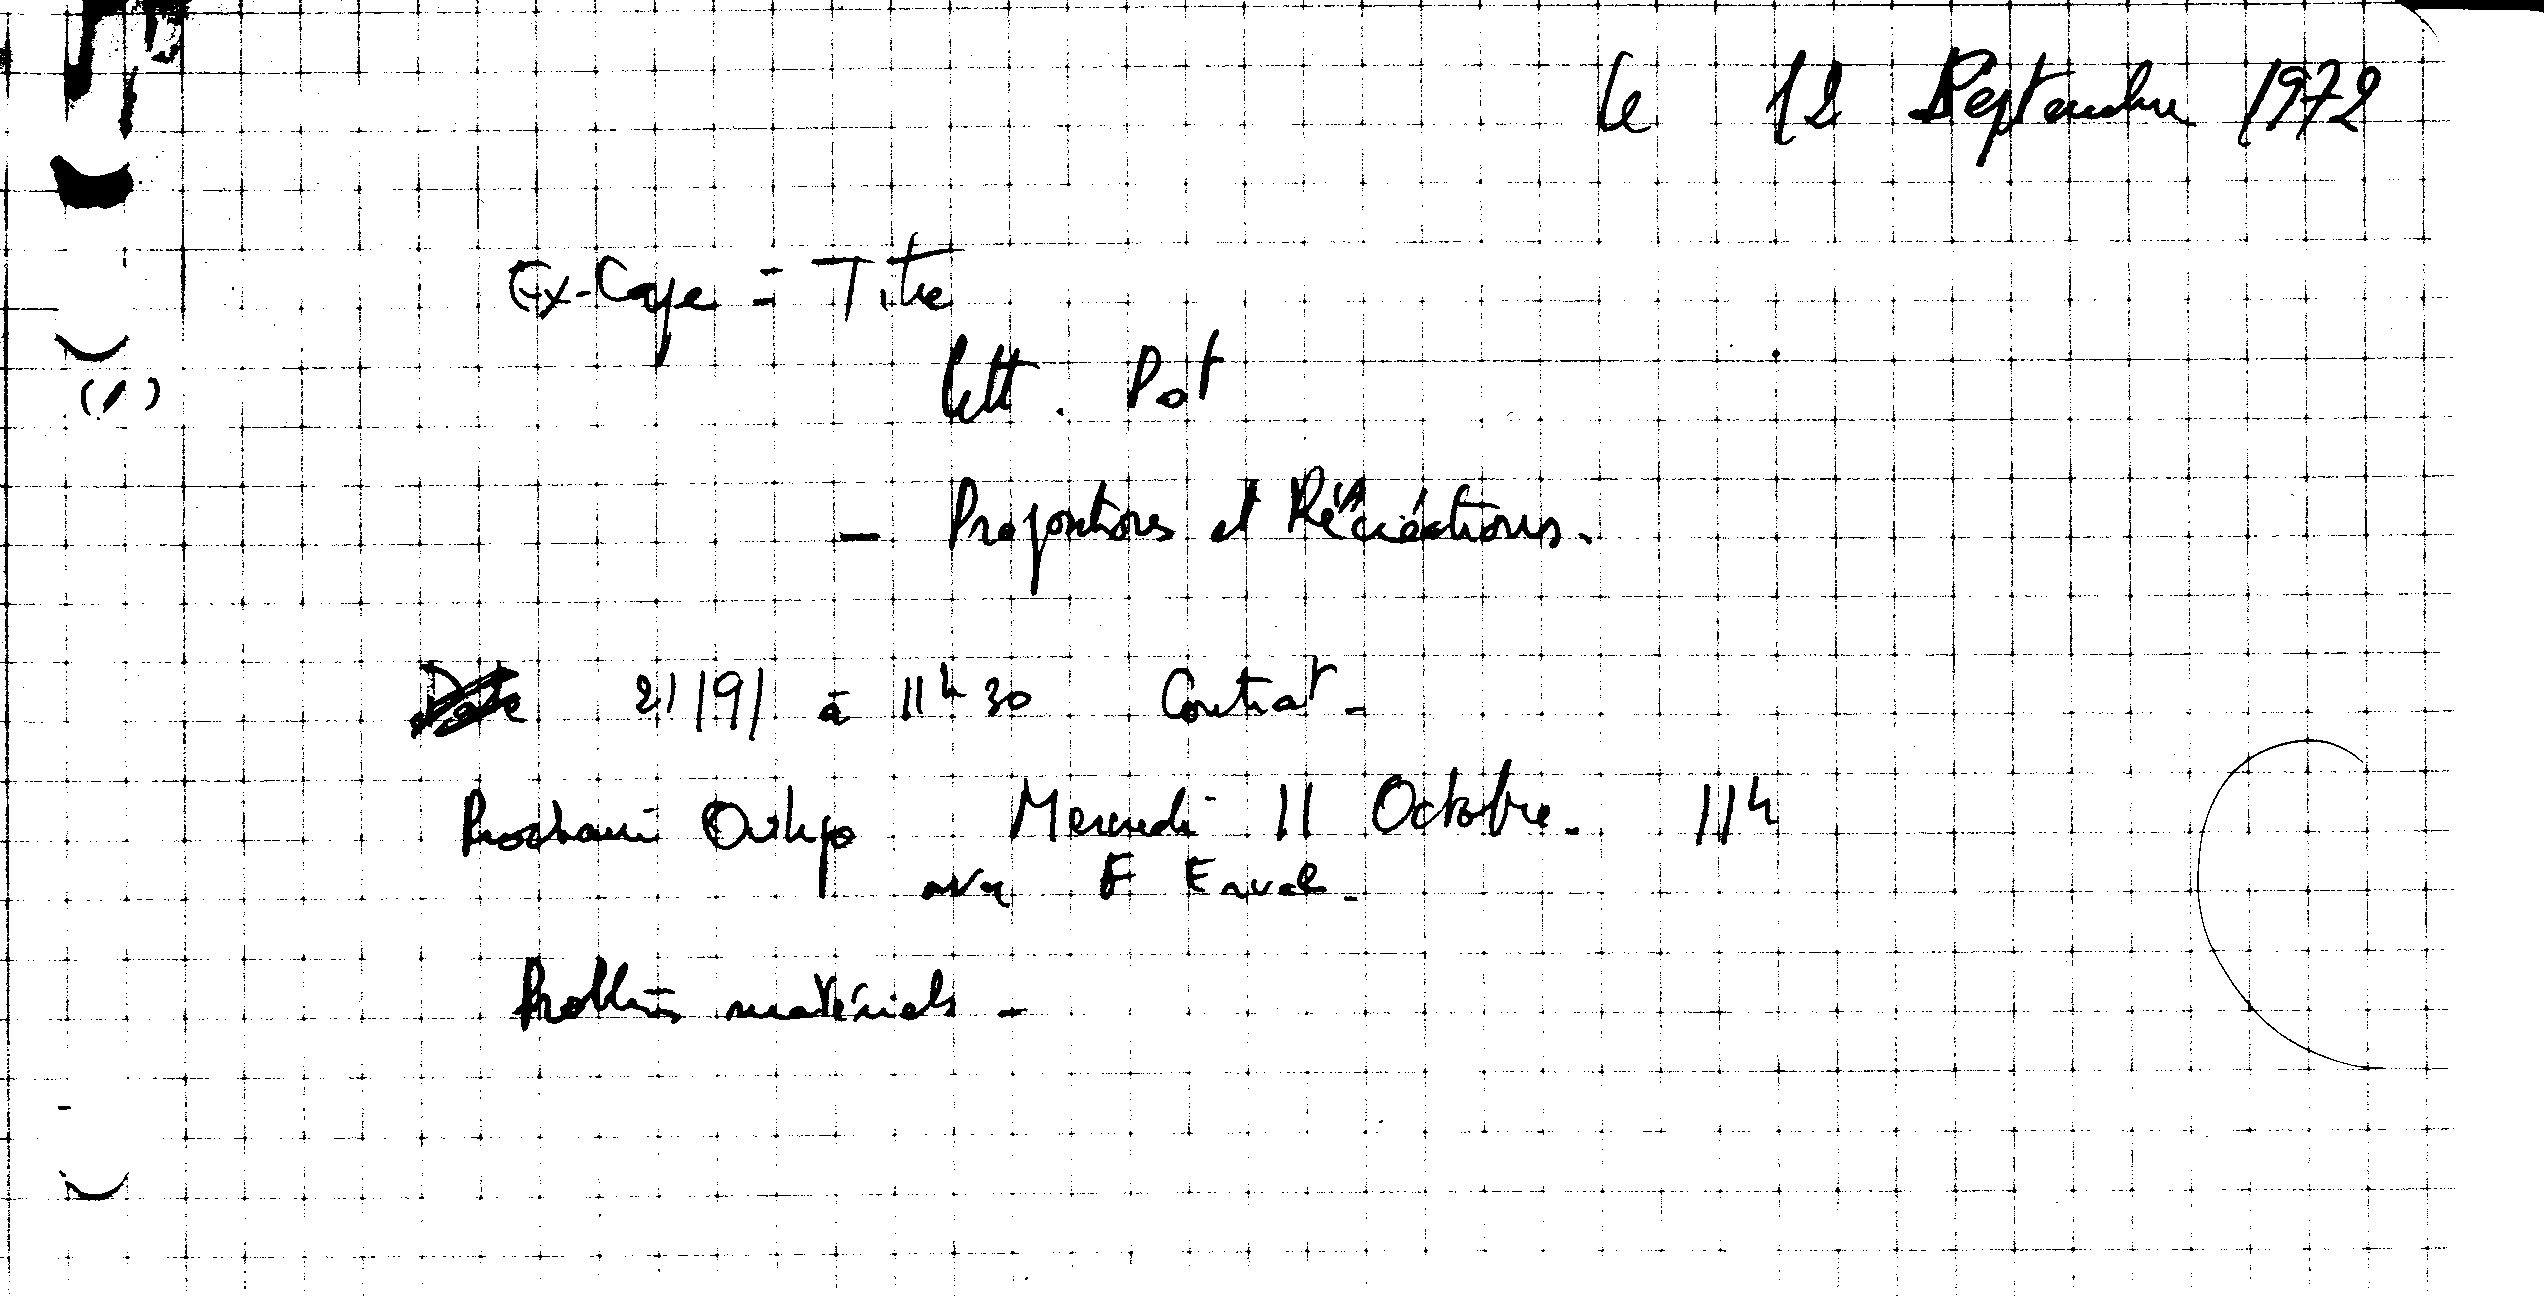 le 12 Septembre 1972
Ex-Cape = Titre
(1)
Litt. Pot
- Propositions et Récréactions.
Date 21/9/ à 11h30 Contrat -
Prochain Oulipo Mercredi 11 Octobre. 11h
avec F
Problèmes matériels -